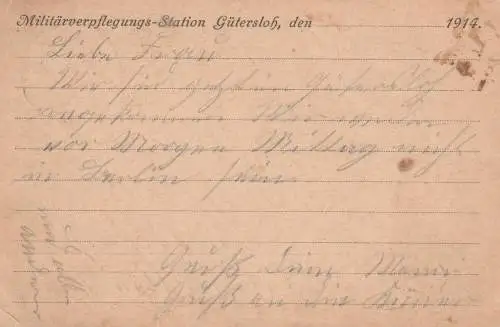 Militärverpflegungs-Station Gütersloh, den 1914.
Liebe Frau
Wir sind jetzt in Gütersloh
angekommen Wir werden
vor Morgen Mittag nicht
in Berlin sein
Gruß Dein Mann
Gruß an die Kinder